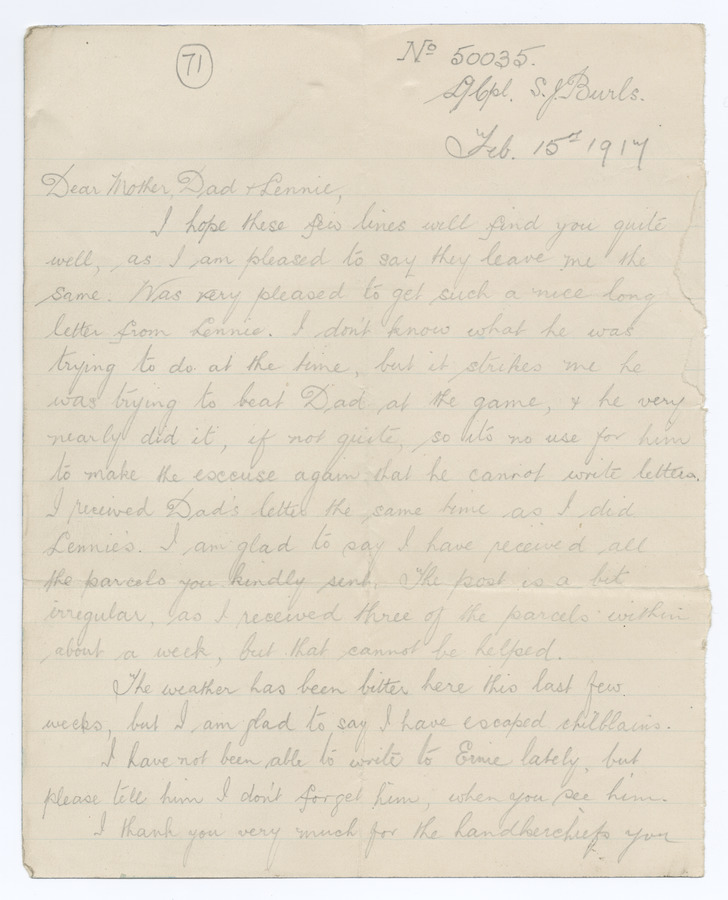 71
No 50035.
L/Cpl. S. J. Burls.
Feb. 15th 1917
Dear Mother, Dad & Lennie,
I hope these few lines will find you quite
well, as I am pleased to say they leave me the
same. Was very pleased to get such a nice long
letter from Lennie. I don't know what he was
trying to do at the time, but it strikes me he
was trying to beat Dad at the game, & he very
nearly did it, if not quite, so its no use for him
to make the excuse again that he cannot write letters.
I received Dad's letter the same time as I did
Lennie's. I am glad to say I have received all
the parcels you kindly sent. The post is a bit
irregular, as I received three of the parcels within
about a week, but that cannot be helped.
The weather has been bitter here this last few
weeks, but I am glad to say I have escaped chilblains.
I have not been able to write to Ernie lately, but
please tell him I don't forget him, when you see him.
I thank you very much for the handkerchiefs you